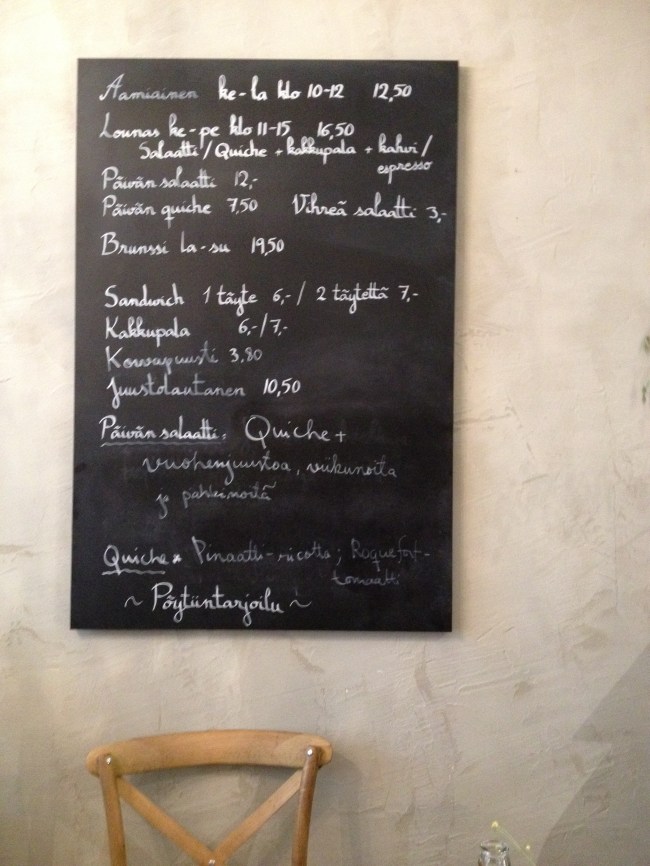 Aamiainen ke-la klo 10-12 12,50
Lounas ke-pe klo 11-15 16,50
Salaatti/Quiche + kakkupala + kahvi/
espresso
Päivän salaatti 12,-
Päivän quiche 7,50 Vihreä salaatti 3,-
Brunssi la-su 19,50
Sandwich 1 täyte 6,-/ 2 täytettä 7,-
Kakkupala 6,-/7,-
Korvapuusti 3.80
Juustolautanen 10,50
Päivän salaatti: Quiche +
vuohenjuustoa, viikunoita
ja pähkinöitä
Quiche: Pinaatti-ricotta; Roquefort-
tomaatti
~ Pöytiintarjoilu ~